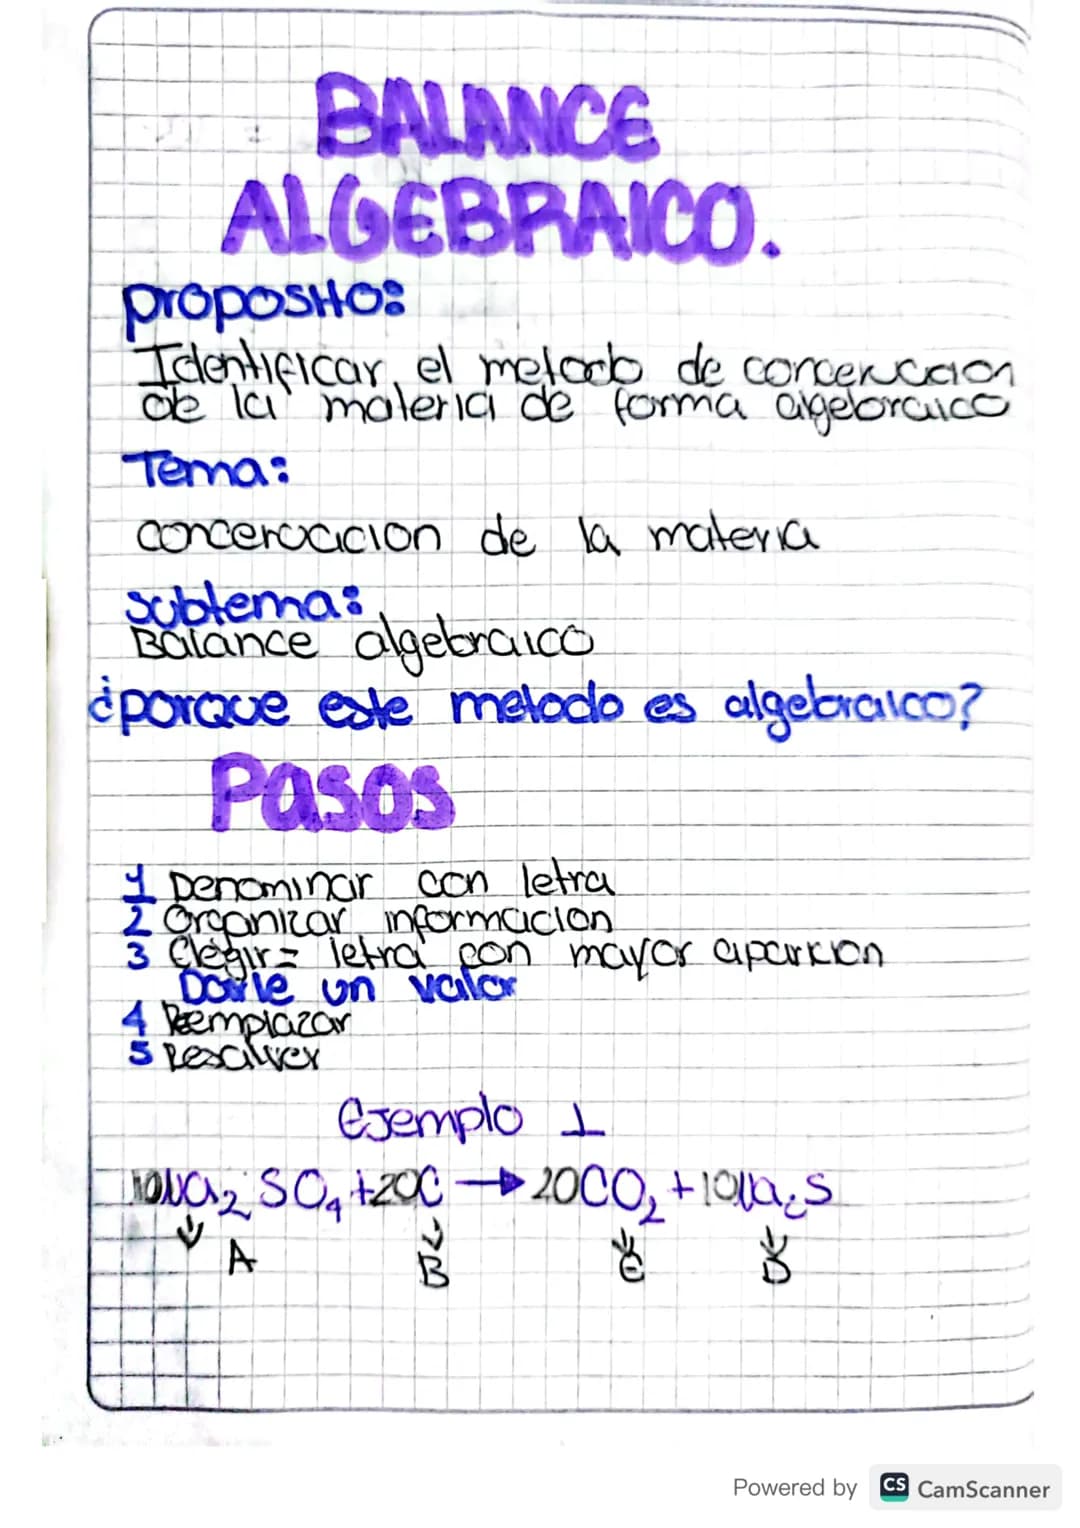 BALANCE
ALGEBRAICO.
proposito:
Identificar el metodo de concervacion
de la materia de forma algebraico
Tema:
concervacion de la materia
subtema:
Balance algebraico
¿porque este metodo es algebraico?
Pasos
1 Denominar con letra
2 Organizar informacion
3 Elegir = letra con mayor aparicion
Darle un valor
4 Remplazar
5 Resolver
Ejemplo 1
10Na₂SO₄ + 20C → 20CO₂ + 10Na₂S
A B C D
Powered by CS CamScanner